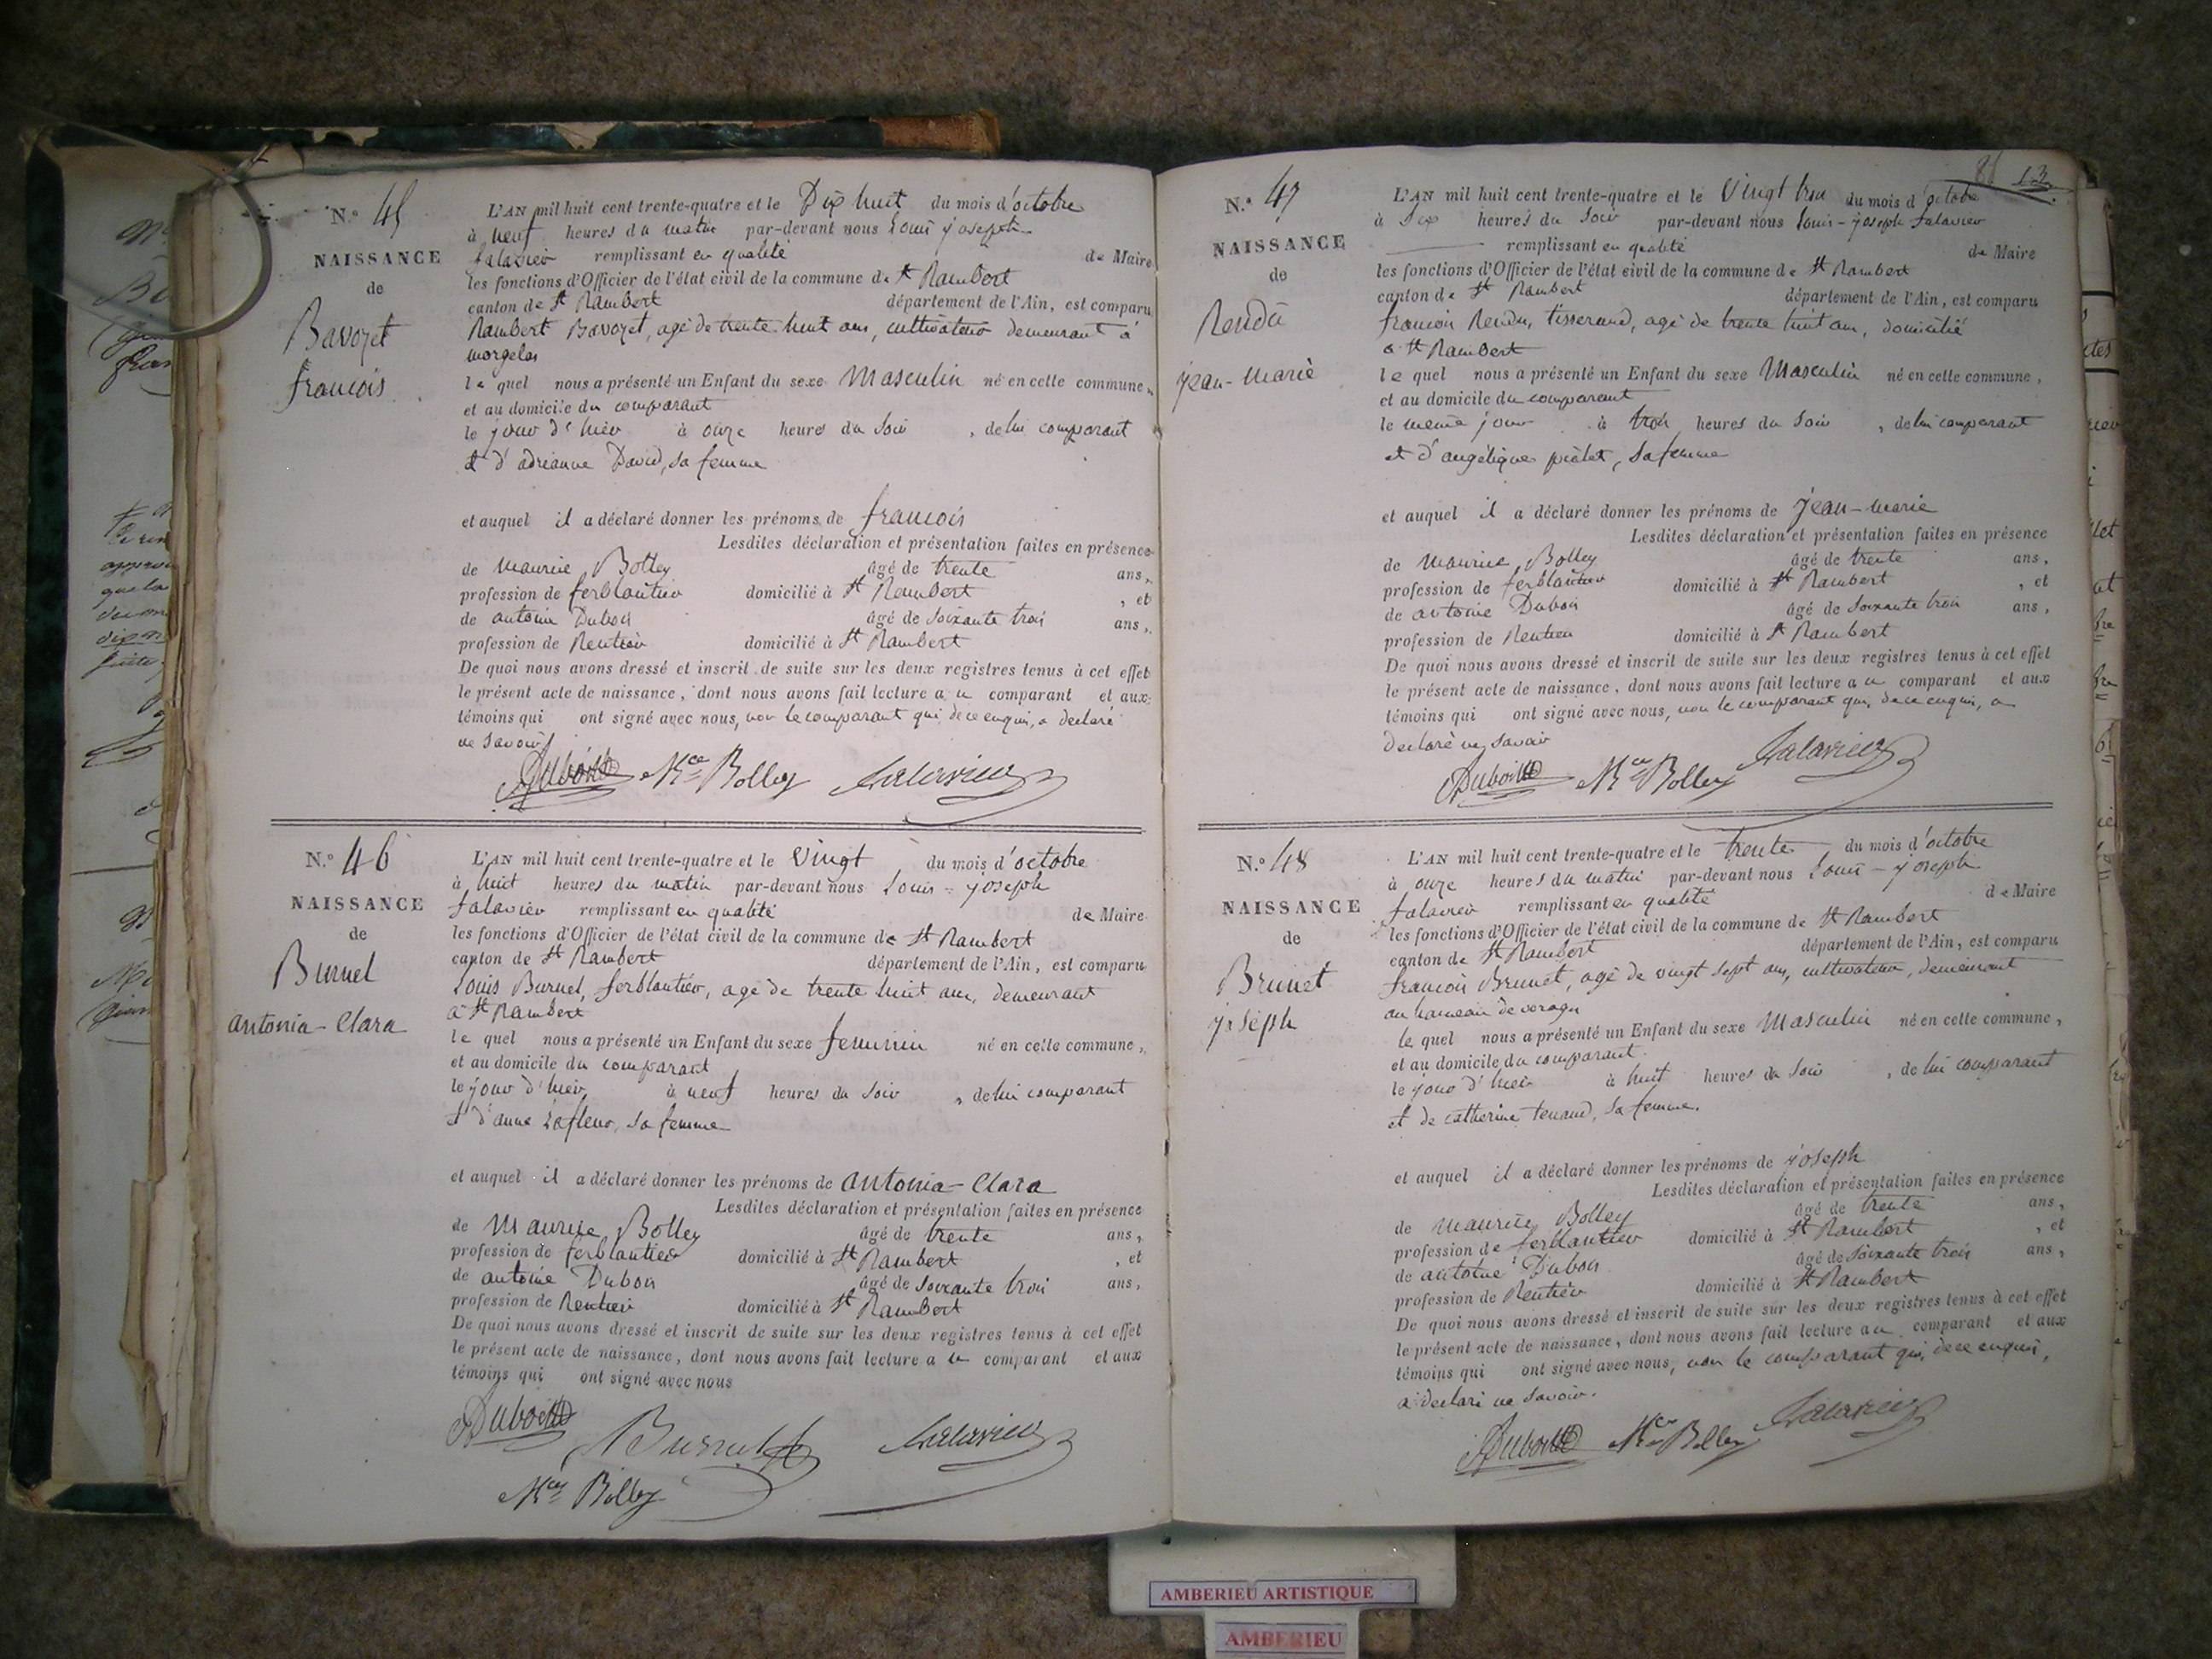 N.º 45
NAISSANCE
de
Bavozet
francois
L'AN mil huit cent trente-quatre et le Dix huit du mois d'octobre
à neuf heures du matin par-devant nous Louis joseph
falavier remplissant en qualité de Maire
les fonctions d'Officier de l'état civil de la commune de St Rambert
canton de St Rambert département de l'Ain, est comparu
Rambert Bavozet, agé de trente huit ans, cultivateur demeurant à
morgelas
le quel nous a présenté un Enfant du sexe Masculin né en cette commune,
et au domicile du comparant
le jour d'hier à onze heures du soir, de lui comparant
et d'adrianne David, sa femme
et auquel il a déclaré donner les prénoms de francois
Lesdites déclaration et présentation faites en présence
de maurice Bolley âgé de trente ans,
profession de ferblantier domicilié à St Rambert, et
de antoine Dubois âgé de soixante trois ans,
profession de Rentier domicilié à St Rambert
De quoi nous avons dressé et inscrit de suite sur les deux registres tenus à cet effet
le présent acte de naissance, dont nous avons fait lecture au comparant et aux
témoins qui ont signé avec nous, non le comparant qui, de ce enquis, a declaré
ne savoir
Dubois Mce Bolley falavier
N.º 46
NAISSANCE
de
Burnel
antonia-Clara
L'AN mil huit cent trente-quatre et le Vingt du mois d'octobre
à huit heures du matin par-devant nous Louis-joseph
falavier remplissant en qualité de Maire
les fonctions d'Officier de l'état civil de la commune de St Rambert
canton de St Rambert département de l'Ain, est comparu
Louis Burnel, ferblantier, agé de trente huit ans, demeurant
à St Rambert
le quel nous a présenté un Enfant du sexe feminin né en cette commune,
et au domicile du comparant
le jour d'hier, à neuf heures du soir, de lui comparant
et d'anne Lafleur, sa femme
et auquel il a déclaré donner les prénoms de antonia-Clara
Lesdites déclaration et présentation faites en présence
de Maurice Bolley âgé de trente ans,
profession de ferblantier domicilié à St Rambert, et
de antoine Dubois âgé de soixante trois ans,
profession de Rentier domicilié à St Rambert
De quoi nous avons dressé et inscrit de suite sur les deux registres tenus à cet effet
le présent acte de naissance, dont nous avons fait lecture au comparant et aux
témoins qui ont signé avec nous
Dubois Burnel falavier
Mce Bolley
81 13
N.º 47
NAISSANCE
de
Rendu
jean-marie
L'AN mil huit cent trente-quatre et le Vingt trois du mois d'octobre
à Six heures du soir par-devant nous Louis-joseph falavier
remplissant en qualité de Maire
les fonctions d'Officier de l'état civil de la commune de St Rambert
canton de St Rambert département de l'Ain, est comparu
francois Rendu, tisserand, agé de trente huit ans, domicilié
à St Rambert
le quel nous a présenté un Enfant du sexe Masculin né en cette commune,
et au domicile du comparant
le même jour à trois heures du soir, de lui comparant
et d'angélique piolet, sa femme
et auquel il a déclaré donner les prénoms de jean-marie
Lesdites déclaration et présentation faites en présence
de maurice Bolley âgé de trente ans,
profession de ferblantier domicilié à St Rambert, et
de antoine Dubois âgé de soixante trois ans,
profession de Rentier domicilié à St Rambert
De quoi nous avons dressé et inscrit de suite sur les deux registres tenus à cet effet
le présent acte de naissance, dont nous avons fait lecture au comparant et aux
témoins qui ont signé avec nous, non le comparant qui, de ce enquis, a
declaré ne savoir
Dubois Mce Bolley falavier
N.º 48
NAISSANCE
de
Brunet
joseph
L'AN mil huit cent trente-quatre et le trente du mois d'octobre
à onze heures du matin par-devant nous Louis-joseph
falavier remplissant en qualité de Maire
les fonctions d'Officier de l'état civil de la commune de St Rambert
canton de St Rambert département de l'Ain, est comparu
francois Brunet, agé de vingt sept ans, cultivateur, demeurant
au hameau de
le quel nous a présenté un Enfant du sexe Masculin né en cette commune,
et au domicile du comparant
le jour d'hier à huit heures du soir, de lui comparant
et de catherine tenand, sa femme.
et auquel il a déclaré donner les prénoms de joseph
Lesdites déclaration et présentation faites en présence
de maurice Bolley âgé de trente ans,
profession de ferblantier domicilié à St Rambert, et
de antoine Dubois âgé de soixante trois ans,
profession de Rentier domicilié à St Rambert
De quoi nous avons dressé et inscrit de suite sur les deux registres tenus à cet effet
le présent acte de naissance, dont nous avons fait lecture au comparant et aux
témoins qui ont signé avec nous, non le comparant qui, de ce enquis,
a declaré ne savoir.
Dubois Mce Bolley falavier
AMBERIEU ARTISTIQUE
AMBERIEU